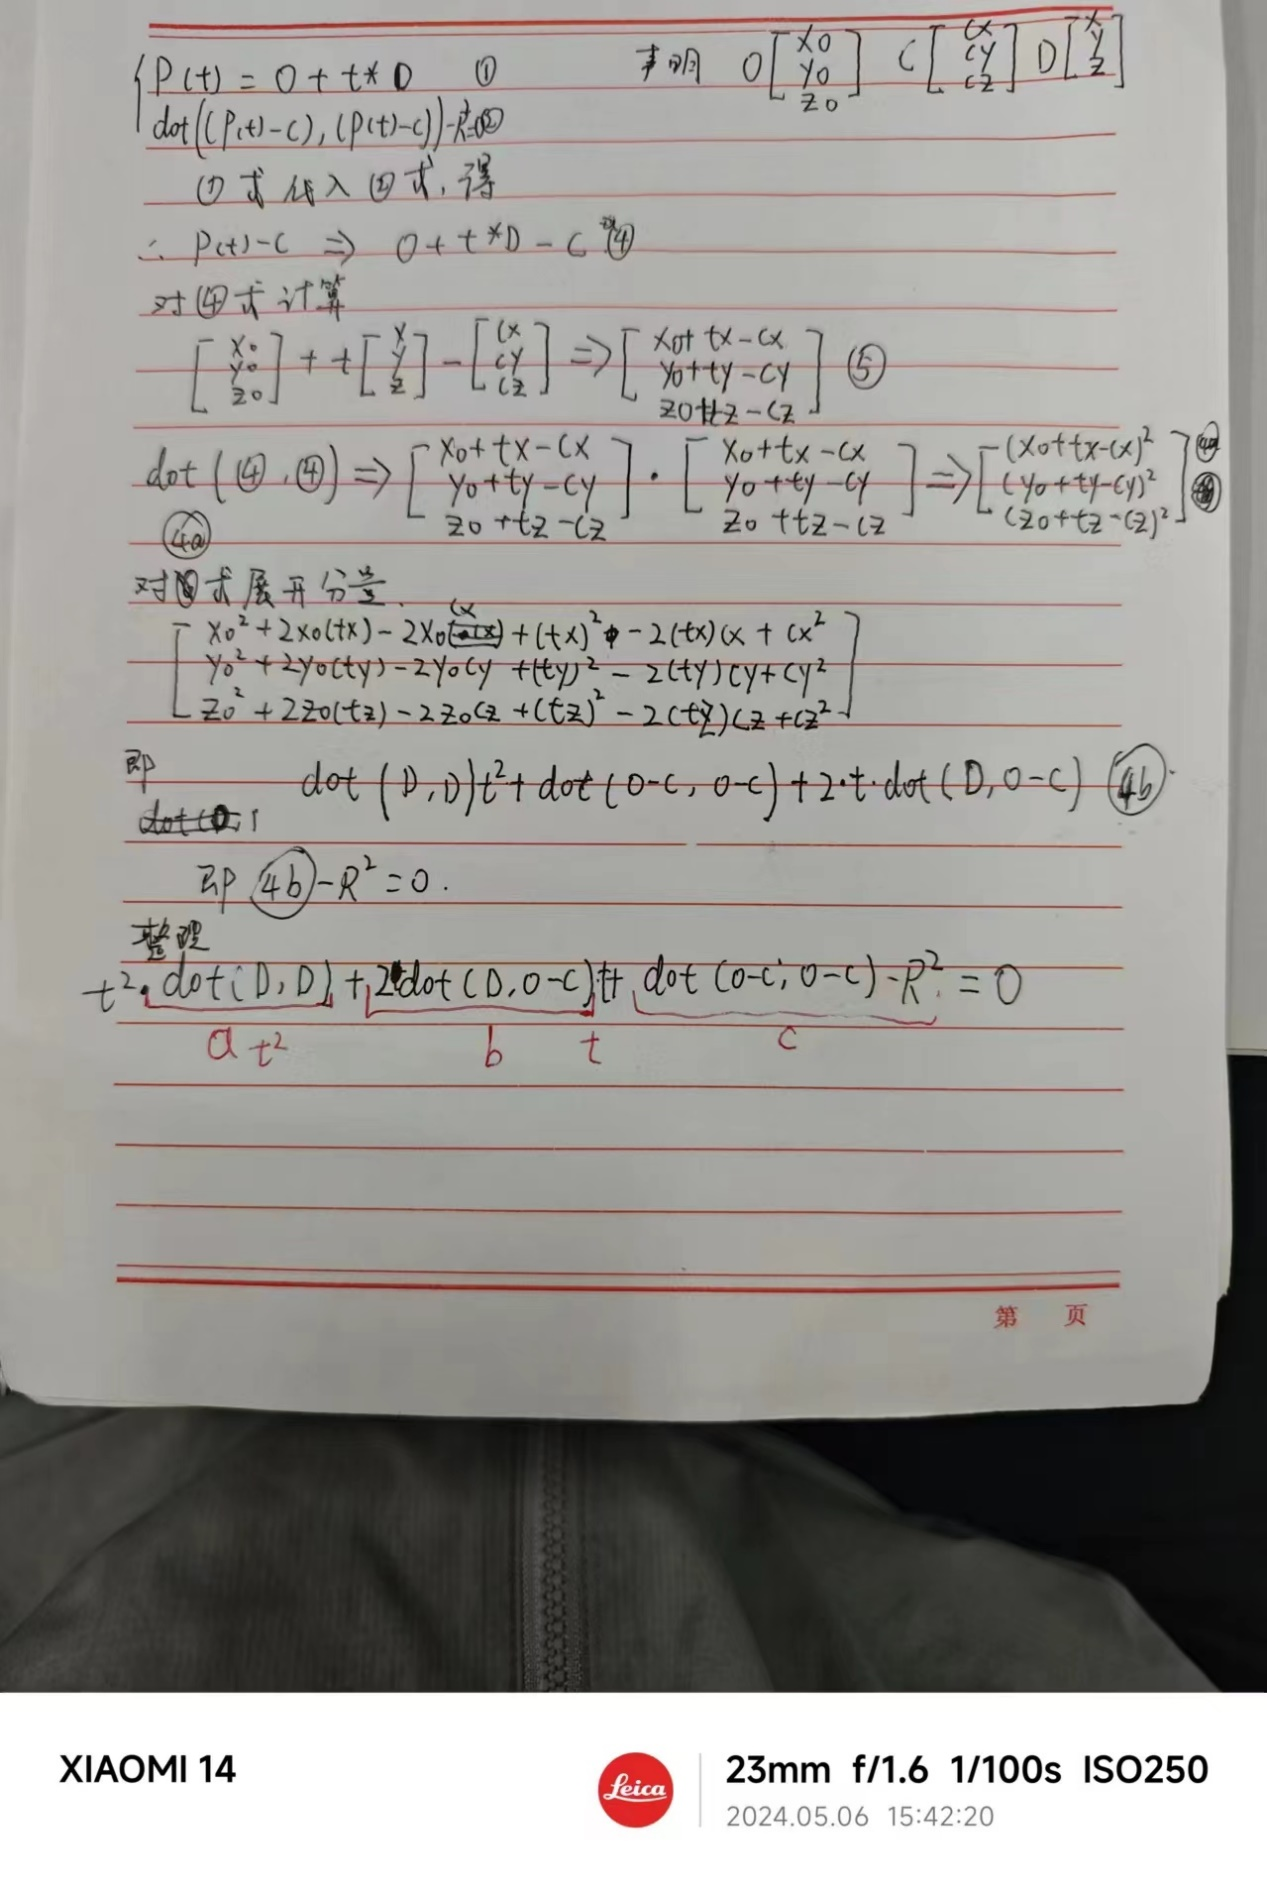 P(t) = O + t* D ① 声明 O[x0 y0 z0] C[cx cy cz] D[x y z]
dot((P(t)-C), (P(t)-C))-R²=0②
①式代入②式,得
∴ P(t)-C ⇒ O + t*D - C ④
对④式计算
[x0 y0 z0] + t[x y z] - [cx cy cz] ⇒ [x0+tx-cx y0+ty-cy z0+tz-cz] ⑤
dot(④,④) ⇒ [x0+tx-cx y0+ty-cy z0+tz-cz] · [x0+tx-cx y0+ty-cy z0+tz-cz] ⇒ [(x0+tx-cx)² (y0+ty-cy)² (z0+tz-cz)²] 4a
4a
对 式展开分量.
x0² + 2x0(tx) - 2x0cx + (tx)² - 2(tx)cx + cx²
y0² + 2y0(ty) - 2y0cy + (ty)² - 2(ty)cy + cy²
z0² + 2z0(tz) - 2z0cz + (tz)² - 2(tz)cz + cz²
即 dot(D,D)t² + dot(O-C, O-C) + 2·t·dot(D, O-C) 4b
即 4b - R² = 0.
整理
t²·dot(D,D) + 2dot(D,O-C)t + dot(O-C, O-C) - R² = 0
a t² b t c
第 页
XIAOMI 14
Leica
23mm f/1.6 1/100s ISO250
2024.05.06 15:42:20